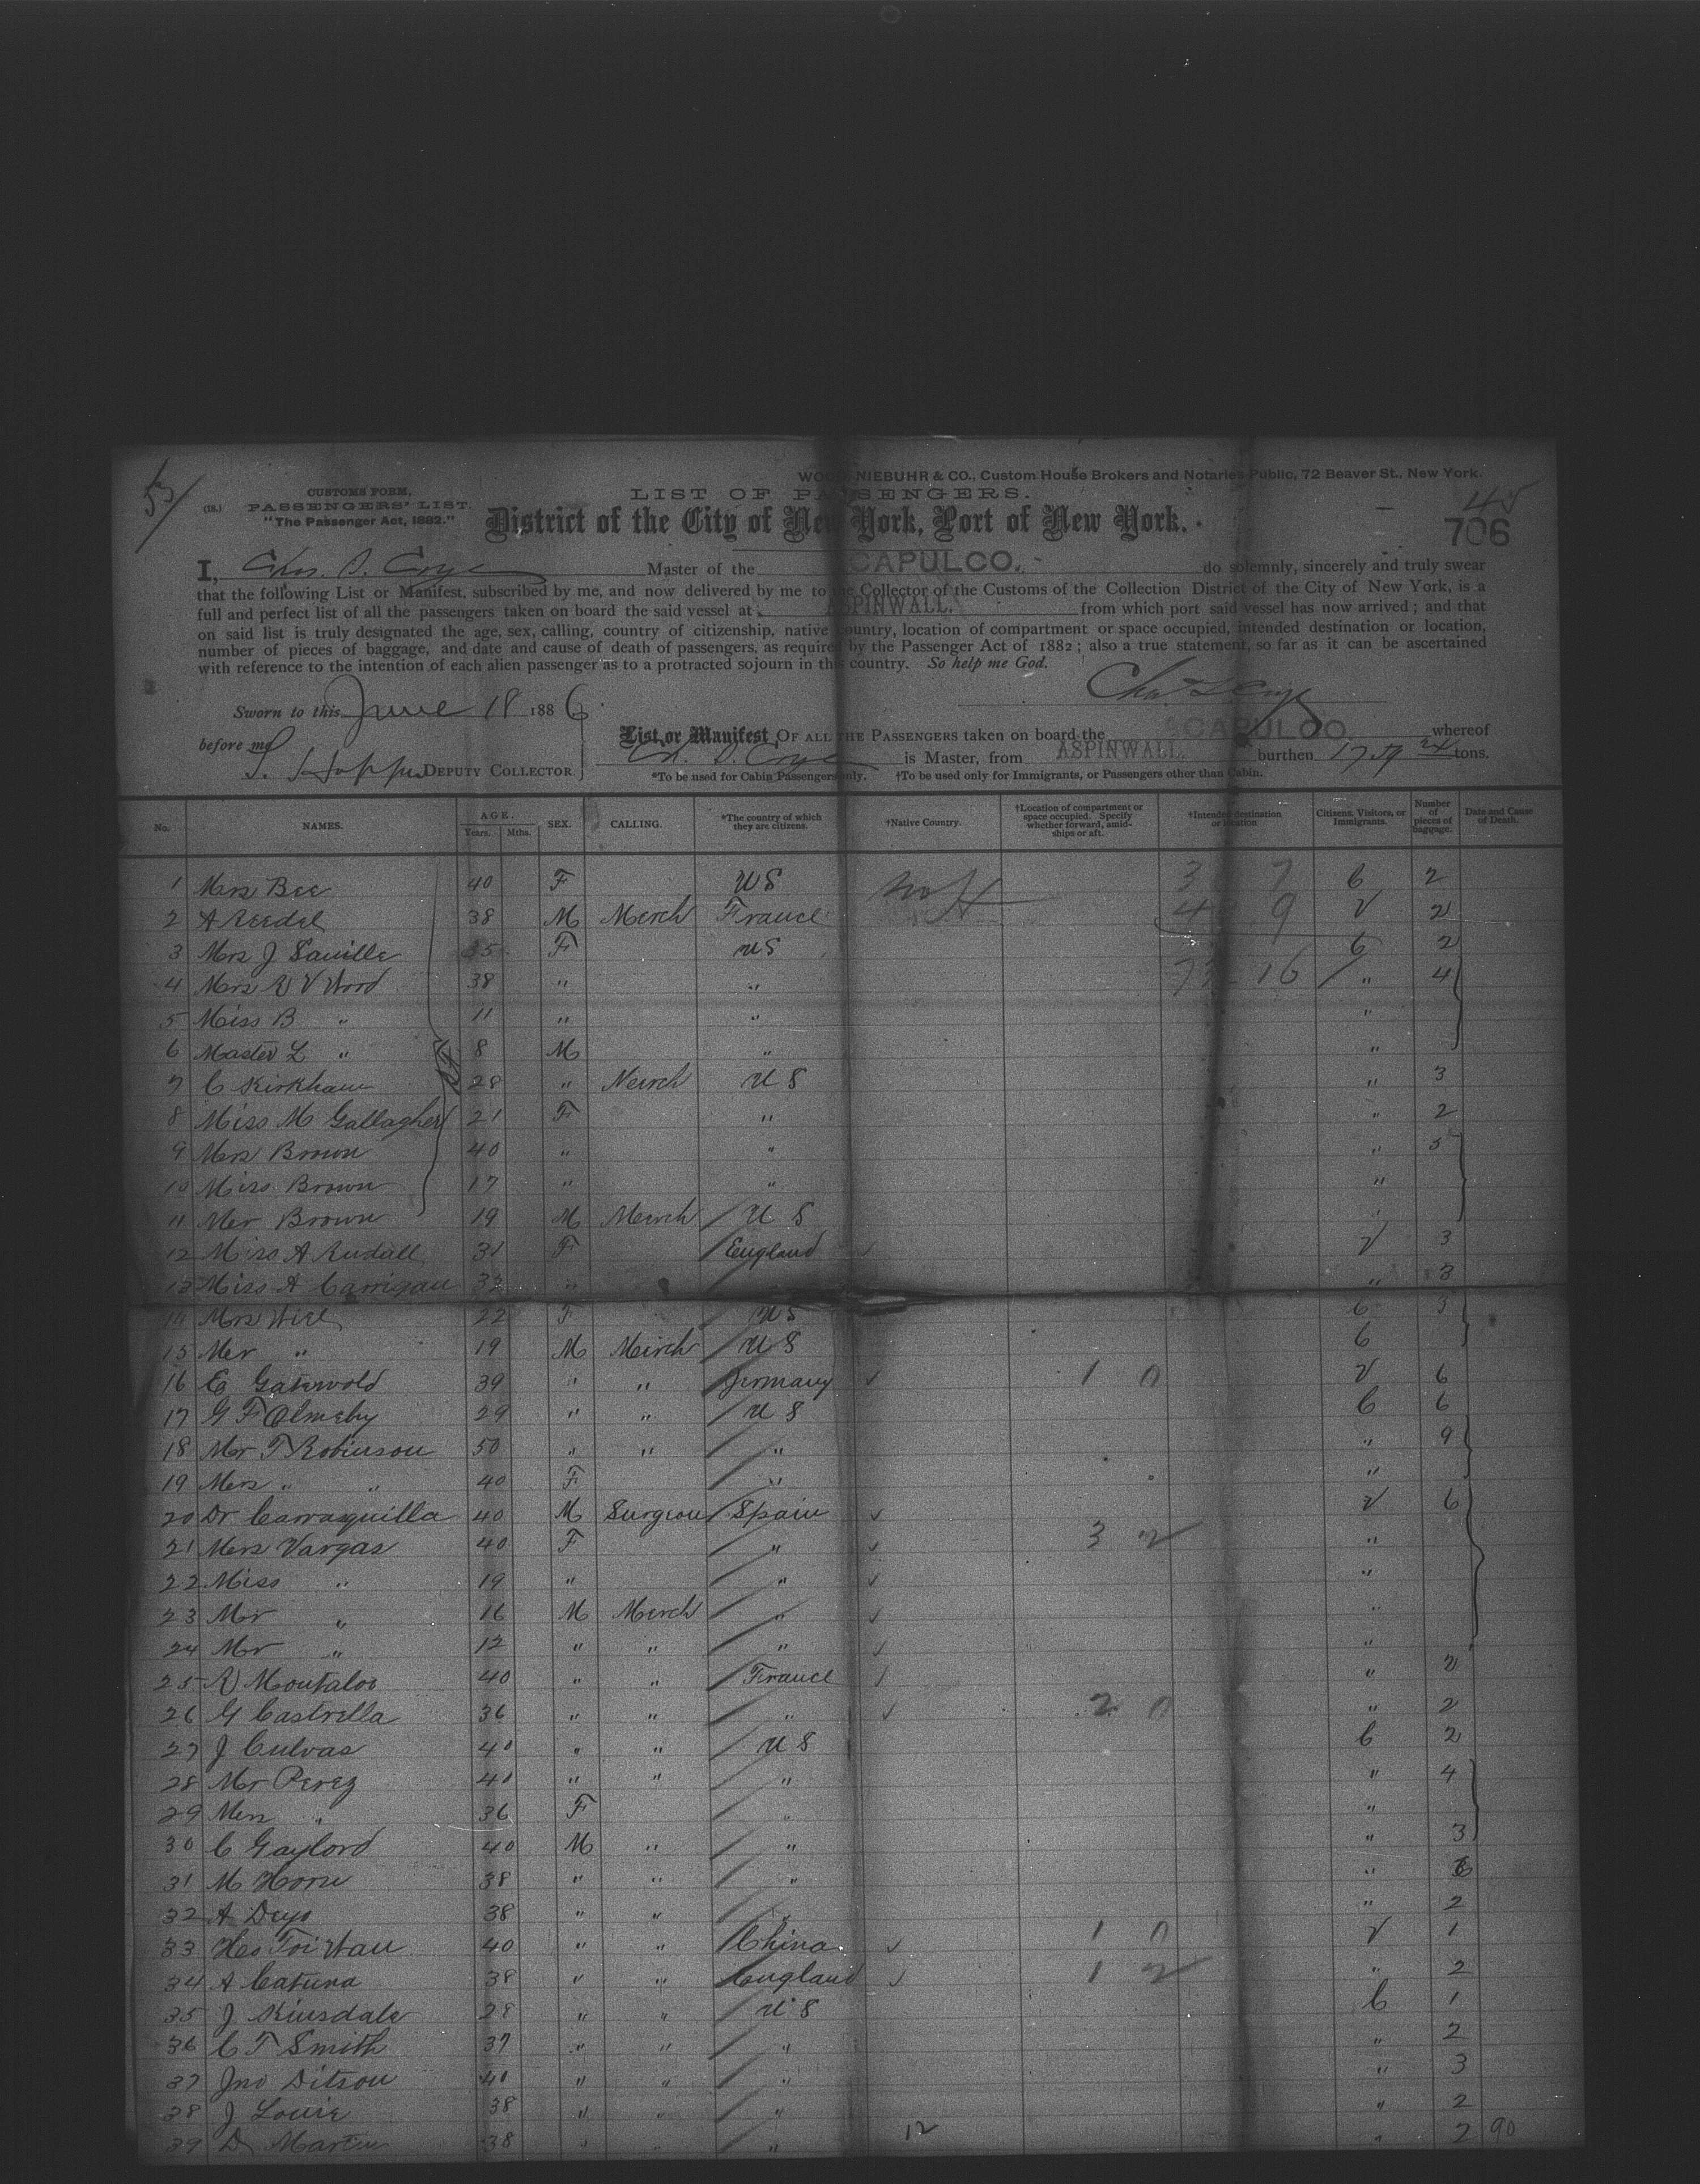 WOOD, NIEBUHR & CO., Custom House Brokers and Notaries Public, 72 Beaver St., New York.
45
706
CUSTOMS FORM,
(18.) PASSENGERS' LIST.
"The Passenger Act, 1882."
LIST OF PASSENGERS.
District of the City of New York, Port of New York.
I, Master of the ACAPULCO. do solemnly, sincerely and truly swear
that the following List or Manifest, subscribed by me, and now delivered by me to the Collector of the Customs of the Collection District of the City of New York, is a
full and perfect list of all the passengers taken on board the said vessel at ASPINWALL. from which port said vessel has now arrived; and that
on said list is truly designated the age, sex, calling, country of citizenship, native country, location of compartment or space occupied, intended destination or location,
number of pieces of baggage, and date and cause of death of passengers, as required by the Passenger Act of 1882; also a true statement, so far as it can be ascertained
with reference to the intention of each alien passenger as to a protracted sojourn in this country. So help me God.
Sworn to this June 18 1886
before me
DEPUTY COLLECTOR
List or Manifest OF ALL THE PASSENGERS taken on board the ACAPULCO. whereof
is Master, from ASPINWALL. burthen tons.
*To be used for Cabin Passengers only. †To be used only for Immigrants, or Passengers other than Cabin.
No. NAMES. AGE. Years. Mths. SEX. CALLING. *The country of which they are citizens. †Native Country. †Location of compartment or space occupied. Specify whether forward, amidships or aft. †Intended destination or location Citizens, Visitors, or Immigrants. Number of pieces of baggage. Date and Cause of Death.
1 Mrs Bee 40 F U S C 2
2 A Reedel 38 M Merch France V 2
3 Mrs J Saville F U S C 2
4 Mrs R V Wood 38 " " " 4
5 Miss B " 11 " " "
6 Master L " 8 M " "
7 C Kirkham 28 " Merch U S " 3
8 Miss M Gallagher 21 F " " 2
9 Mrs Brown 40 " " " 5
10 Miss Brown 17 " " "
11 Mr Brown 19 M Merch U S "
12 Miss A Rudall 31 F England V 3
13 Miss A Carrigan " " 3
14 Mrs 22 F U S C 3
15 Mr " 19 M Merch U S C
16 E 39 " " Germany 1 0 V 6
17 G F Olmeby 29 " " U S C 6
18 Mr T Robinson 50 " " " " 9
19 Mrs " " 40 F " "
20 Dr Carrasquilla 40 M Surgeon Spain V 6
21 Mrs Vargas 40 F " 3 2 "
22 Miss " 19 " " "
23 Mr " 16 M Merch " "
24 Mr " 12 " " " "
25 R 40 " " France " 2
26 G Castrella 36 " " " 2 0 " 2
27 J Culvas 40 " " U S C 2
28 Mr Perez 40 " " " " 4
29 Mrs " 36 F " "
30 C Gaylord 40 M " " " 3
31 M Horn 38 " " " "
32 A Deys 38 " " " " 2
33 40 " " China 1 0 V 1
34 A Catuna 38 " " England 1 2 " 2
35 J Kinsdale 28 " " U S C 1
36 C T Smith 37 " " " " 2
37 Jno Ditson 40 " " " " 3
38 J Louie 38 " " " " 2
39 D Martin 38 " " " 12 " 2 90